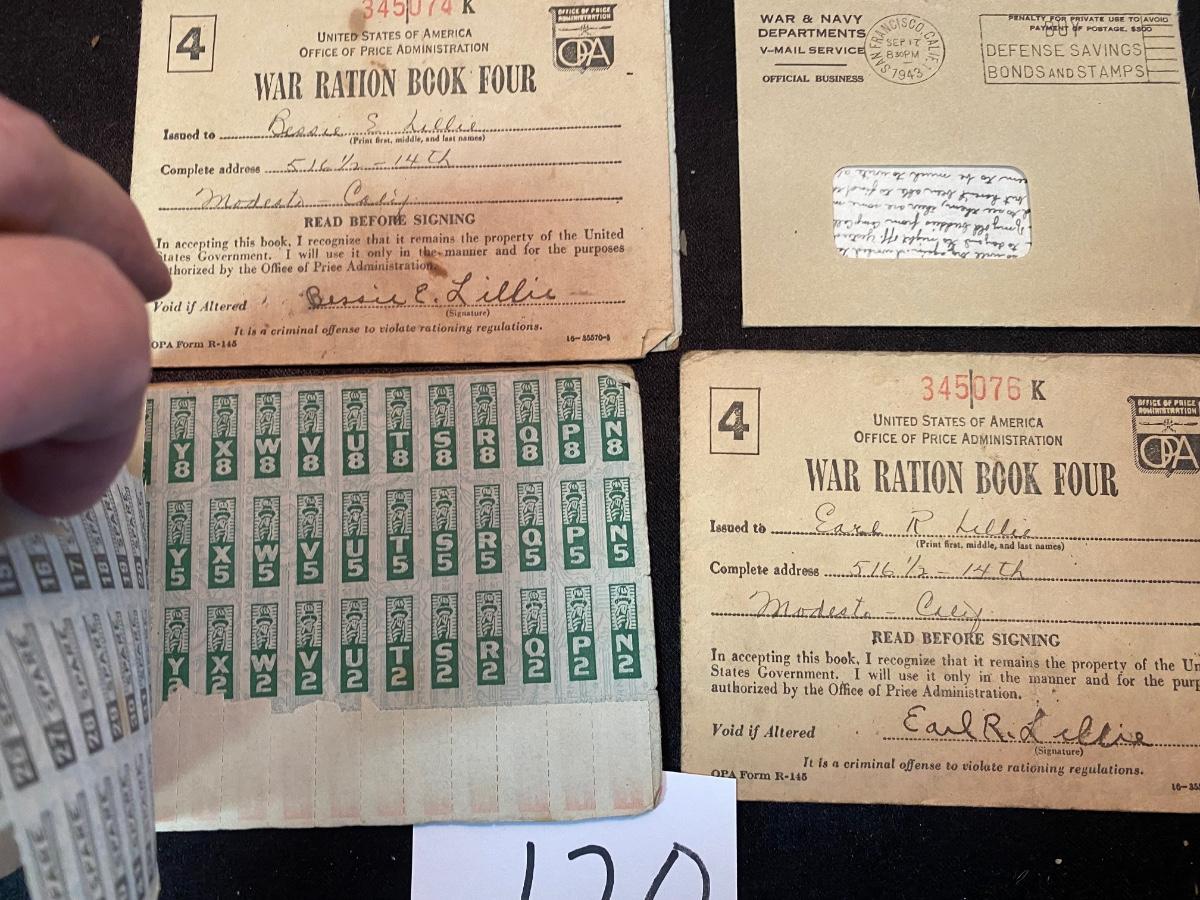 345074 K
4
UNITED STATES OF AMERICA
OFFICE OF PRICE ADMINISTRATION
OFFICE OF PRICE
ADMINISTRATION
OPA
WAR RATION BOOK FOUR
Issued to Bessie E. Lillie
(Print first, middle, and last names)
Complete address 516 1/2 - 14th
Modesto - Calif.
READ BEFORE SIGNING
In accepting this book, I recognize that it remains the property of the United
States Government. I will use it only in the manner and for the purposes
authorized by the Office of Price Administration.
Void if Altered Bessie E. Lillie
(Signature)
It is a criminal offense to violate rationing regulations.
OPA Form R-145 16-35570-1
WAR & NAVY
DEPARTMENTS
V-MAIL SERVICE
OFFICIAL BUSINESS
SAN FRANCISCO, CALIF.
SEP 17
8 30 PM
1943
PENALTY FOR PRIVATE USE TO AVOID
PAYMENT OF POSTAGE, $300
BUY
DEFENSE SAVINGS
BONDS AND STAMPS
Y8 X8 W8 V8 U8 T8 S8 R8 Q8 P8 N8
Y5 X5 W5 V5 U5 T5 S5 R5 Q5 P5 N5
Y2 X2 W2 V2 U2 T2 S2 R2 Q2 P2 N2
16 17 18 19 20
SPARE SPARE SPARE
26 27 28 29 30
SPARE SPARE SPARE
345076 K
4
UNITED STATES OF AMERICA
OFFICE OF PRICE ADMINISTRATION
OFFICE OF PRICE
ADMINISTRATION
OPA
WAR RATION BOOK FOUR
Issued to Earl R Lillie
(Print first, middle, and last names)
Complete address 516 1/2 - 14th
Modesto - Calif.
READ BEFORE SIGNING
In accepting this book, I recognize that it remains the property of the Un
States Government. I will use it only in the manner and for the purp
authorized by the Office of Price Administration.
Void if Altered Earl R. Lillie
(Signature)
It is a criminal offense to violate rationing regulations.
OPA Form R-145 16-355
120